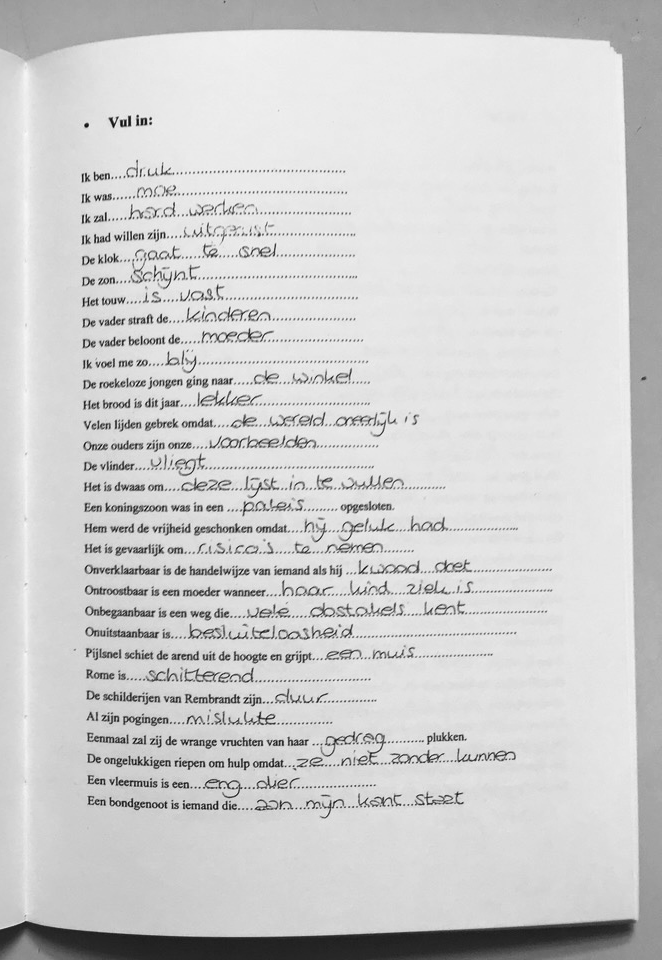 • Vul in:
Ik ben....druk..........................................
Ik was......moe..........................................
Ik zal.....hard werken.......................
Ik had willen zijn....uitgerust....................
De klok....gaat te snel...................
De zon....schijnt.......................................
Het touw....is vast.................................
De vader straft de....kinderen.....................
De vader beloont de.....moeder.......................
Ik voel me zo....blij...........................................
De roekeloze jongen ging naar.....de winkel.....
Het brood is dit jaar....lekker...........................
Velen lijden gebrek omdat.....de wereld oneerlijk is
Onze ouders zijn onze.....voorbeelden................
De vlinder....vliegt..........................................
Het is dwaas om....deze lijst in te vullen...........
Een koningszoon was in een ....paleis......... opgesloten.
Hem werd de vrijheid geschonken omdat....hij geluk had...................
Het is gevaarlijk om....risico's te nemen........
Onverklaarbaar is de handelwijze van iemand als hij ...kwaad doet...................
Ontroostbaar is een moeder wanneer....haar kind ziek is....................
Onbegaanbaar is een weg die.....vele obstakels kent.....................
Onuitstaanbaar is.....besluiteloosheid.........................................
Pijlsnel schiet de arend uit de hoogte en grijpt...een muis...................
Rome is.....schitterend.............................
De schilderijen van Rembrandt zijn...duur.............
Al zijn pogingen....mislukte..............
Eenmaal zal zij de wrange vruchten van haar ...gedrag.......... plukken.
De ongelukkigen riepen om hulp omdat...ze niet zonder kunnen
Een vleermuis is een....eng dier...................
Een bondgenoot is iemand die....aan mijn kant staat